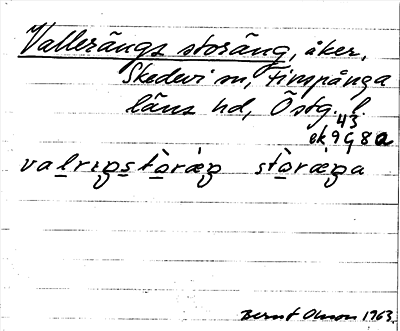 Vallerängs storäng, åker,
Skedevi sn, Finspånga
läns hd, Östg. l.
43
ek 9G8a
valrɪŋstòræ̀ŋ stòræŋa
Bernt Olsson 1963.